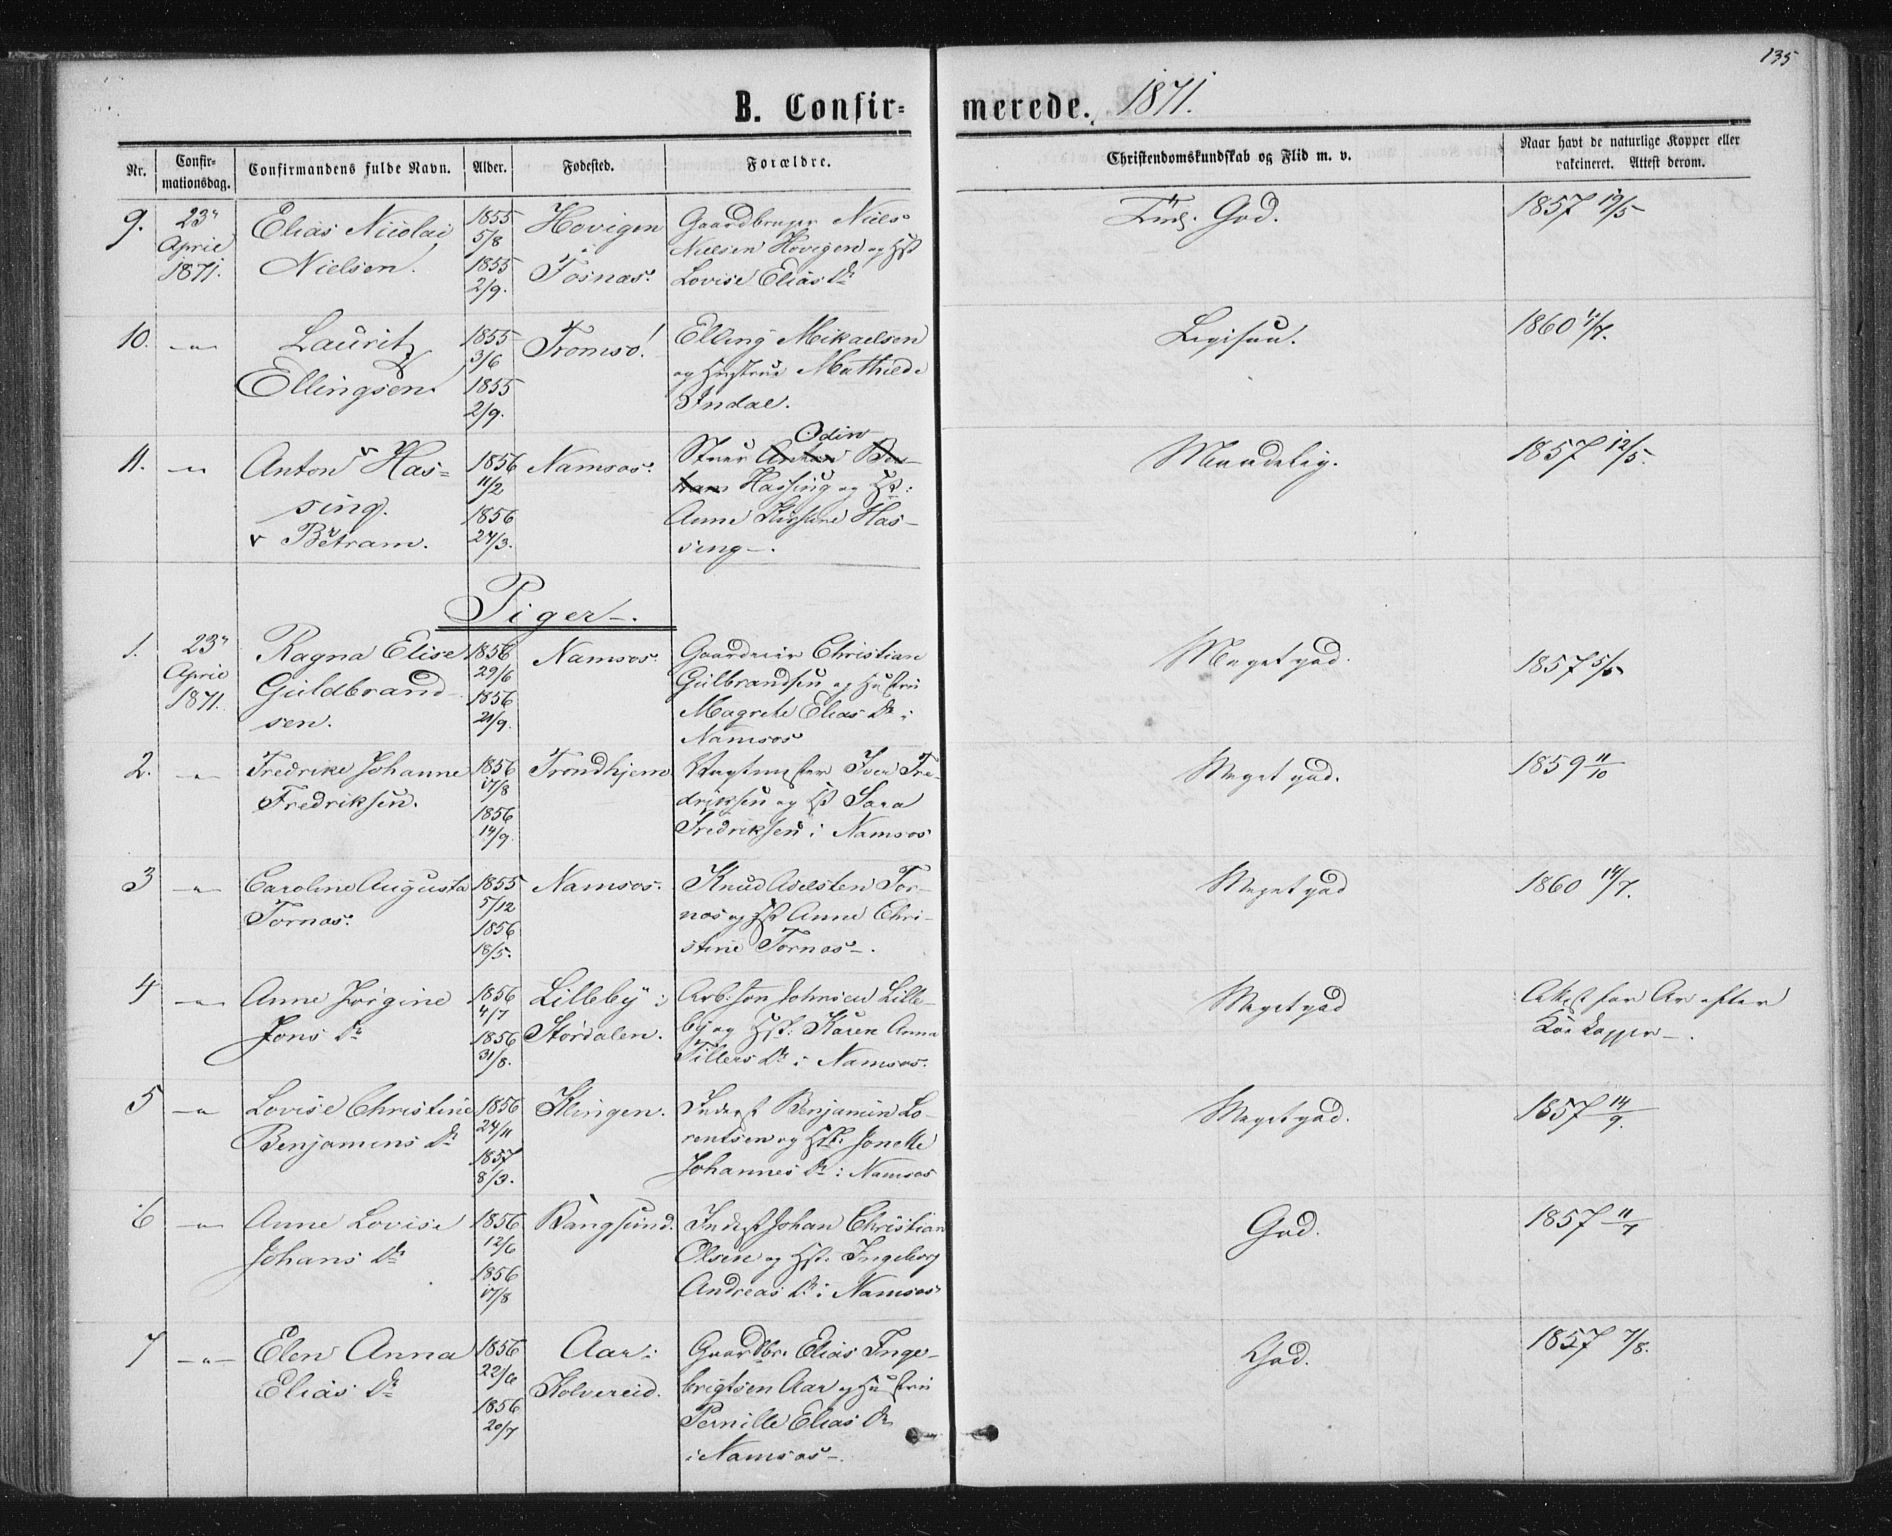 135
B. Confir= merede. 1871.
Nr. Confir=mationsdag. Confirmandens fulde Navn. Alder. Fødested. Forældre. Christendomskundskab og Flid m. v. Naar havt de naturlige Kopper eller vakcineret. Attest derom.
9. 23' April 1871. Elias Nicolai Nielsen. 1855 5/8 1855 2/9. Hovigen i Fosnæs. Gaardbruger Niels Nielsen Hovigen og Hst Lovise Elias Dr God. 1857 19/5
10. -"- Lauritz Ellingsen 1855 3/6 1855 2/9. Tromsö! Elling Mikaelsen og Hustrue Mathilde Indal. 1860 4/7.
11. -"- Anton v Hassing. v Betram. 1856 11/2 1856 24/3. Namsos. Odin Hassing og Hst: Anne Hassing-. Maadelig. 1857 12/5.
Piger-.
1. 23' April 1871. Ragna Elise Guldbrandsen. 1856 29/6 1856 21/9. Namsos. Christian Gulbrandsen og Hustru Magrete Elias Dr i Namsos Meget god. 1857 5/5
2. -"- Fredrike Johanne Fredriksen. 1856 17/8 1856 14/9. Trondhjem Vagtmester Iver Fredriksen og Hst Sara Fredriksen i Namsos Meget god. 1859 11/10
3 -"- Caroline Augusta Tornæs. 1855 5/12 1856 18/5. Namsos. Knud Adelsten Tornæs og Hst Anne Christine Tornæs-. Meget god 1860 14/7.
4 -"- Anne Jörgine Jons Dr 1856 4/7 1856 31/8. Lilleby i Stördalen. Arb: Jon Johnsen Lilleby og Hst: Karen Anna Tillers Dr i Namsos. Meget god Attest for Ar efter Koe kopper-.
5 -"- Lovise Christine Benjamins Dr 1856 24/11 1857 8/3. Klingen. Inderst Benjamin Lorentsen og Hst: Jonette Johannes Dr i Namsos Meget god. 1857 14/9.
6 -"- Anne Lovise Johans Dr 1856 12/6 1856 17/8 Bangsund. Inderst Johan Christian Olsen og Hst. Ingeborg Andreas Dr i Namsos God. 1857 11/7
7 -"- Elen Anna Elias Dr 1856 22/6 1856 20/7 Aar i Kolvereid. Gaardbr: Elias Ingebrigtsen Aar og Hustru Pernille Elias Dr i Namsos-. God. 1857 7/8.